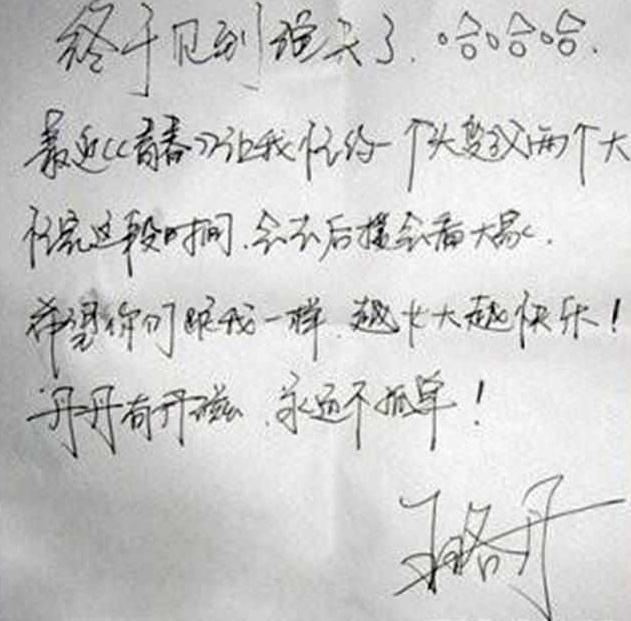 终于见到磁夫了.哈哈哈.
最近《青春》让我忙得一个头变成两个大
忙完这段时间.会去后援会看大家.
希望你们跟我一样.越长大越快乐！
丹丹有丹磁.永远不孤单！
王珞丹